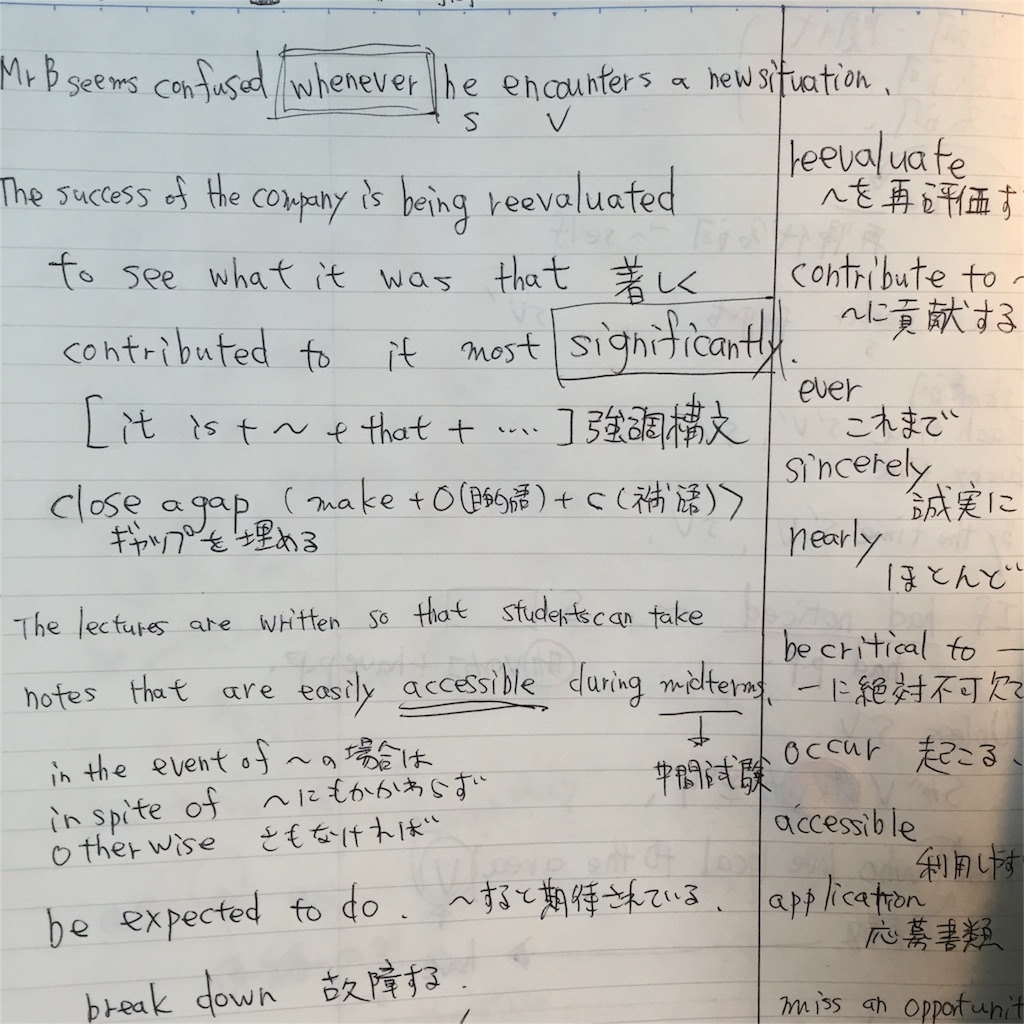 Mr B seems confused whenever he encounters a new situation.
S V
The success of the company is being reevaluated
to see what it was that 著しく
contributed to it most significantly.
[it is + ~ + that + ....] 強調構文
close a gap (make + O(目的語) + C(補語))
ギャップを埋める
The lectures are written so that students can take
notes that are easily accessible during midterms.
中間試験
in the event of ~の場合は
in spite of ~にもかかわらず
otherwise さもなければ
be expected to do. ~すると期待されている.
break down 故障する.
reevaluate
~を再評価す
contribute to ~
~に貢献する
ever
これまで
sincerely
誠実に
nearly
ほとんど
be critical to ―
―に絶対不可欠で
occur 起こる、
accessible
利用しやす
application
応募書類
miss an opportunit